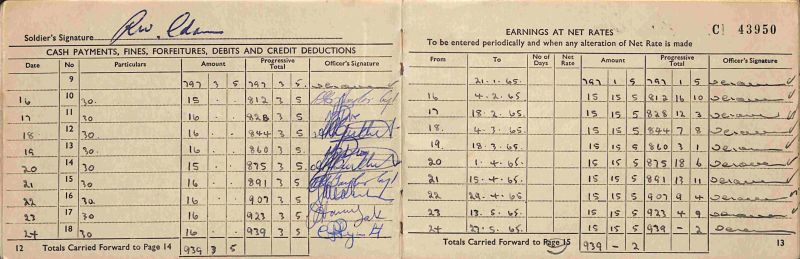 Soldier's Signature RW. Adams
CASH PAYMENTS, FINES, FORFEITURES, DEBITS AND CREDIT DEDUCTIONS
Date No Particulars Amount Progressive Total Officer's Signature
9 797 3 5 797 3 5.
16 10 30. 15 . . 812 3 5
17 11 30. 16 . . 828 3 5
18 12 30. 16 . . 844 3 5
19 13 30. 16 . . 860 3 5
20 14 30. 15 . . 875 3 5
21 15 30 16 . . 891 3 5
22 16 30 16 . . 907 3 5
23 17 30 16 . . 923 3 5
24 18 30. 16 . . 939 3 5
12 Totals Carried Forward to Page 14 939 3 5
EARNINGS AT NET RATES C 43950
To be entered periodically and when any alteration of Net Rate is made
From To No of Days Net Rate Amount Progressive Total Officer's Signature
21.1.65. 797 1 5 797 1 5
16 4.2.65. 15 15 5 812 16 10
17 18.2.65. 15 15 5 828 12 3
18. 4.3.65. 15 15 5 844 7 8
19. 18.3.65. 15 15 5 860 3 1
20 1.4.65. 15 15 5 875 18 6
21 15.4.65. 15 15 5 891 13 11
22 29.4.65. 15 15 5 907 9 4
23 13.5.65. 15 15 5 923 4 9
24 27.5.65. 15 15 5 939 - 2
Totals Carried Forward to Page 15 939 - 2 13